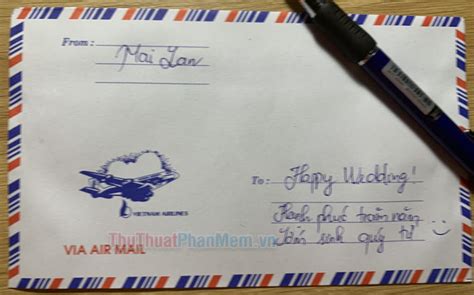 From: Mai Lan
VIETNAM AIRLINES
To: Happy Wedding!
Hạnh phúc trăm năm
Sớm sinh quý tử
ThuThuatPhanMem.vn
VIA AIR MAIL